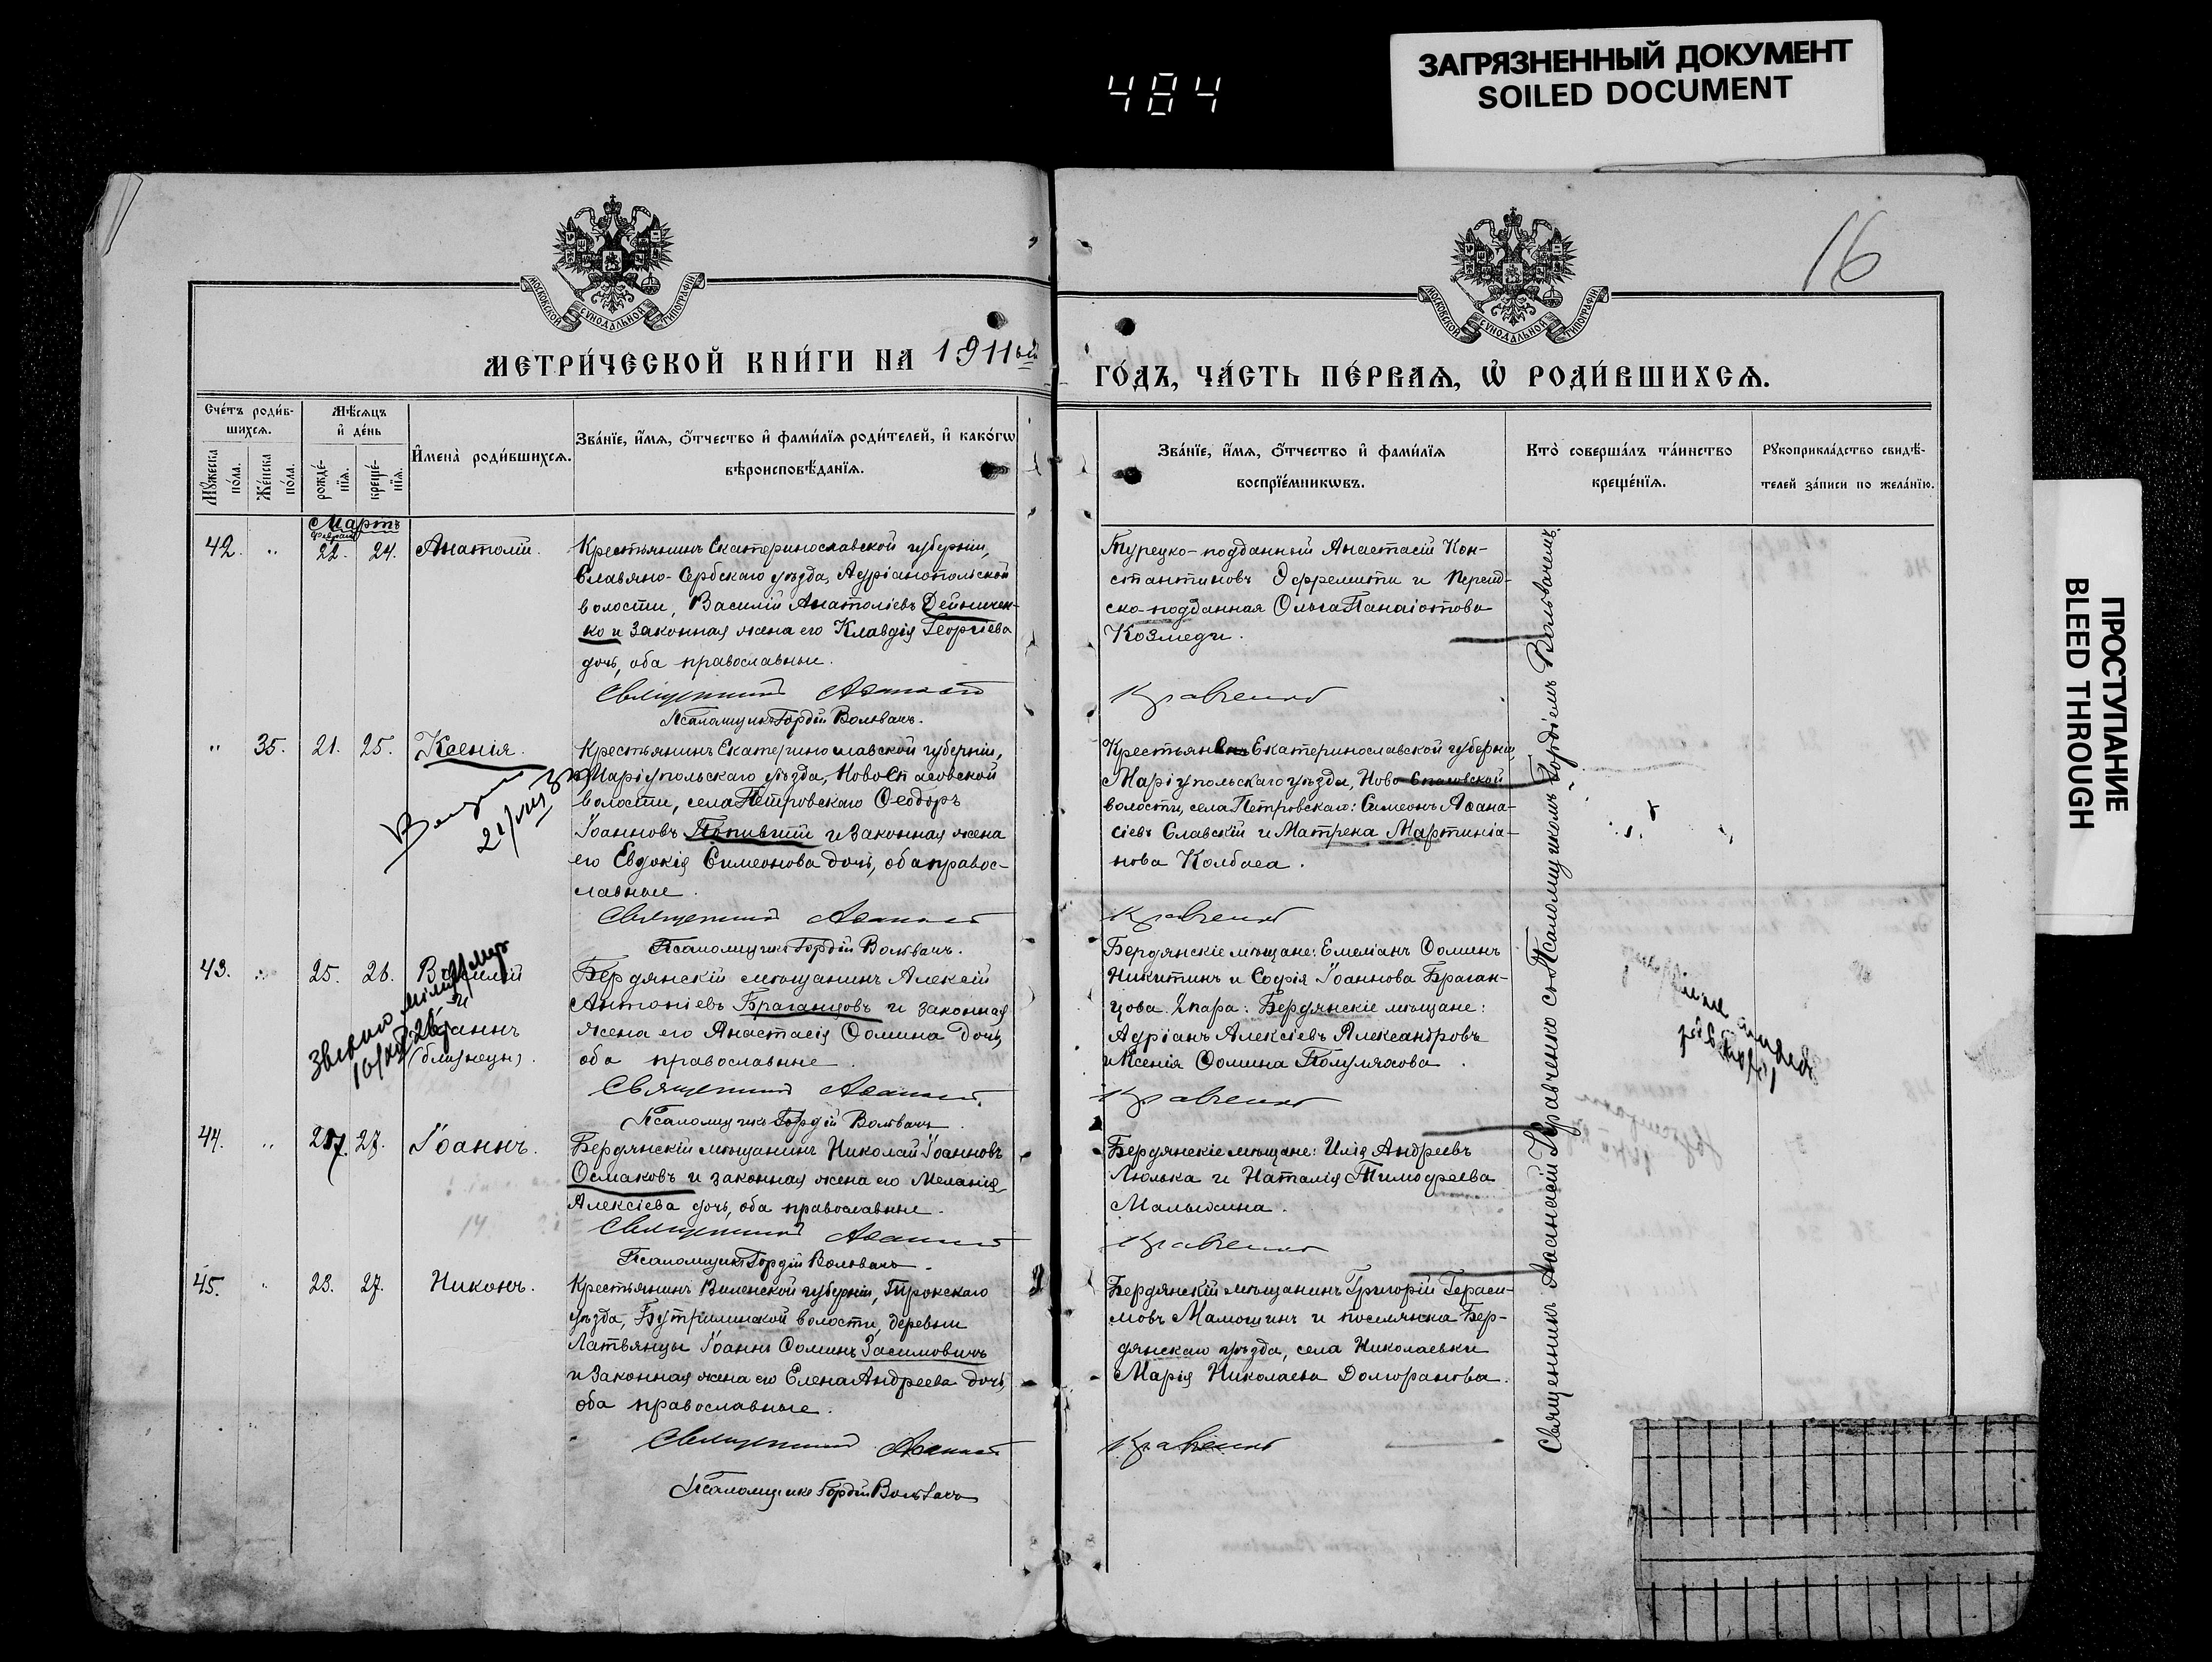 484
ЗАГРЯЗНЕННЫЙ ДОКУМЕНТ
SOILED DOCUMENT
ПРОСТУПАНИЕ
BLEED THROUGH
16
МОСКОВСКОЙ СѴНОДАЛЬНОЙ ТИПОГРАФІИ
МОСКОВСКОЙ СѴНОДАЛЬНОЙ ТИПОГРАФІИ
МЕТРИ́ЧЕСКОЙ КНИ́ГИ НА 1911ый
ГО́ДЪ, ЧА́СТЬ ПЕ́РВАѦ, Ѡ҆ РОДИ́ВШИХСѦ.
Сче́тъ роди́в-
шихсѧ.
Мꙋ́жеска по́ла.
Же́нска по́ла.
Мѣ́сѧцъ
и҆ де́нь
рожде́-
нїѧ.
креще́-
нїѧ.
И҆мена̀ роди́вшихсѧ.
Зва́нїе, и҆́мѧ, ѻ҆́тчество и҆ фами́лїѧ роди́телей, и҆ како́гѡ
вѣроисповѣ́данїѧ.
Зва́нїе, и҆́мѧ, ѻ҆́тчество и҆ фами́лїѧ
воспрїе́мникѡвъ.
Кто̀ соверша́лъ та́инство
креще́нїѧ.
Рꙋкоприкла́дство свидѣ́-
телей за́писи по жела́нїю.
Мартъ
Февраля
42. " 22. 24. Анатолій.
Крестьянинъ Екатеринославской губерніи,
Славяно-Сербскаго уѣзда, Адріанопольской
волости, Василій Анатоліевъ Дейничен-
ко и законная жена его Клавдія Георгіева
дочь, оба православные.
Священникъ Аѳанасій
Псаломщикъ Гордій Вольвачъ.
Турецко-подданный Анастасій Кон-
стантиновъ Эффремити и персид-
ско-подданная Ольга Панаіотова
Козмеди.
Кравченко
" 35. 21. 25. Ксенія.
Крестьянинъ Екатеринославской губерніи,
Маріупольскаго уѣзда, Новоспасовской
волости, села Петровскаго Ѳеодоръ
Іоанновъ Попившій и законная жена
его Евдокія Симеонова дочь, оба правос-
лавные.
Священникъ Аѳанасій
Псаломщикъ Гордій Вольвачъ.
Крестьяне Екатеринославской губерніи,
Маріупольскаго уѣзда, Ново-Спасовской
волости, села Петровскаго: Симеонъ Аѳана-
сіевъ Славскій и Матрена Мартиніа-
нова Колбаса.
Кравченко
43. " 25. 26. Василій
и
Іоаннъ
(близнецы).
Бердянскій мѣщанинъ Алексій
Антоніевъ Браганцовъ и законная
жена его Анастасія Ѳомина дочь,
оба православные.
Священникъ Аѳанасій
Псаломщикъ Гордій Вольвачъ.
Бердянскіе мѣщане: Емеліанъ Ѳоминъ
Никитинъ и Софія Іоаннова Браган-
цова. 2 пара: Бердянскіе мѣщане:
Адріанъ Алексіевъ Александровъ
и Ксенія Ѳомина Полуляхова.
Кравченко
44. " 27. 27. Іоаннъ.
Бердянскій мѣщанинъ Николай Іоанновъ
Осмаковъ и законная жена его Меланія
Алексіева дочь, оба православные.
Священникъ Аѳанасій
Псаломщикъ Гордій Вольвачъ.
Бердянскіе мѣщане: Илія Андреевъ
Люлька и Наталія Тимофеева
Малыхина.
Кравченко
45. " 23. 27. Никонъ.
Крестьянинъ Виленской губерніи, Трокскаго
уѣзда, Бутриминской волости, деревни
Латвянцы Іоаннъ Ѳоминъ Засимовичъ
и законная жена его Елена Андреева дочь,
оба православные.
Священникъ Аѳанасій
Псаломщикъ Гордій Вольвачъ
Бердянскій мѣщанинъ Григорій Гераси-
мовъ Мамошинъ и поселянка Бер-
дянскаго уѣзда, села Николаевки
Марія Николаева Долгоранова.
Кравченко
Священникъ Аѳанасій Кравченко съ Псаломщикомъ Гордіемъ Вольвачемъ.